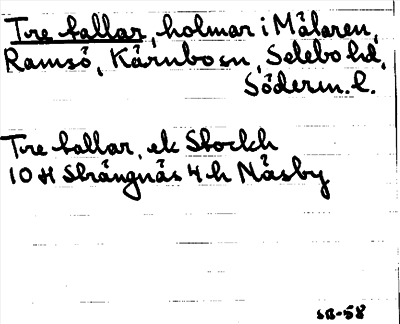 Tre kallar, holmar i Mälaren,
Ramsö, Kärnbo sn, Selebo hd,
Söderm. l.
Tre kallar, ek Stockh
10 H Strängnäs 4 h Näsby
SB-58